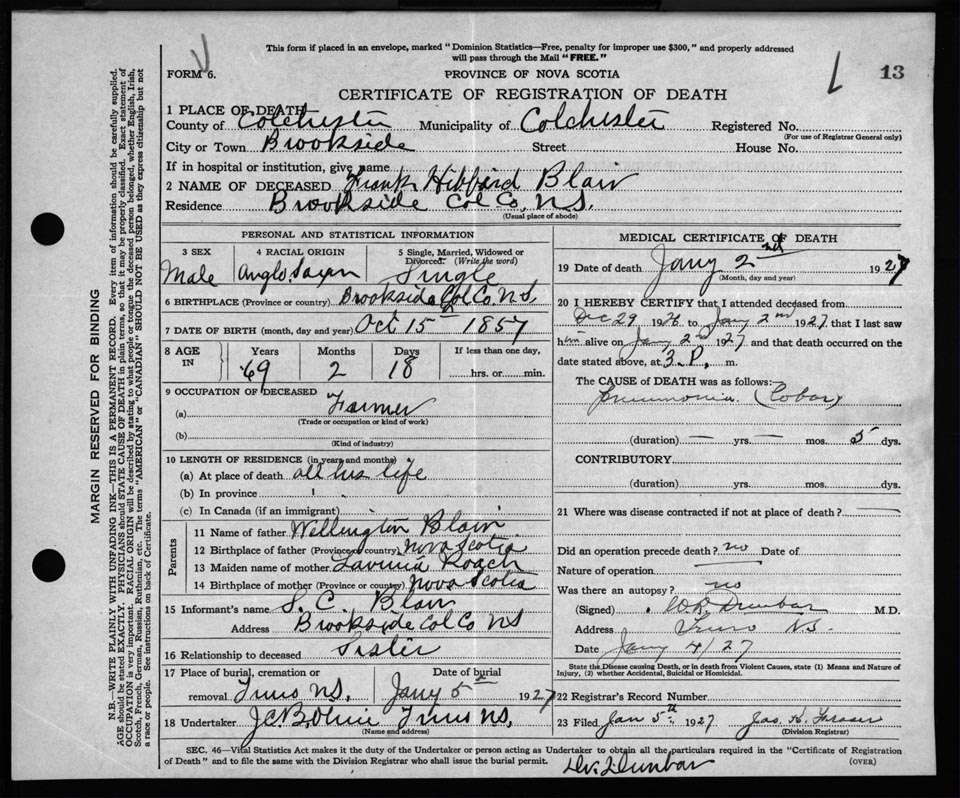 This form if placed in an envelope, marked "Dominion Statistics—Free, penalty for improper use $300," and properly addressed
will pass through the Mail "FREE."
FORM 6.
PROVINCE OF NOVA SCOTIA
13
CERTIFICATE OF REGISTRATION OF DEATH
1 PLACE OF DEATH
County of Colchester Municipality of Colchester Registered No.
(For use of Registrar General only)
City or Town Brookside Street House No.
If in hospital or institution, give name
2 NAME OF DECEASED Frank Hibbard Blair
Residence Brookside Col Co. N.S.
(Usual place of abode)
PERSONAL AND STATISTICAL INFORMATION
3 SEX
Male
4 RACIAL ORIGIN
Anglo Saxon
5 Single, Married, Widowed or
Divorced. (Write the word)
Single
6 BIRTHPLACE (Province or country) Brookside Col Co. N.S.
7 DATE OF BIRTH (month, day and year) Oct 15th 1857
8 AGE
IN
Years
69
Months
2
Days
18
If less than one day,
hrs. or min.
9 OCCUPATION OF DECEASED
(a) Farmer
(Trade or occupation or kind of work)
(b)
(Kind of industry)
10 LENGTH OF RESIDENCE (in years and months)
(a) At place of death all his life
(b) In province
(c) In Canada (if an immigrant)
Parents
11 Name of father Wellington Blair
12 Birthplace of father (Province or country) Nova Scotia
13 Maiden name of mother Lavinia Roach
14 Birthplace of mother (Province or country) Nova Scotia
15 Informant's name S. C. Blair
Address Brookside Col Co NS
16 Relationship to deceased Sister
17 Place of burial, cremation or
removal Truro N.S.
Date of burial
Jany 5th 1927
18 Undertaker Truro N.S.
(Name and address)
MEDICAL CERTIFICATE OF DEATH
19 Date of death Jany 2nd 1927
(Month, day and year)
20 I HEREBY CERTIFY that I attended deceased from
Dec 29 1926 to Jany 2nd 1927 that I last saw
him alive on Jany 2nd 1927 and that death occurred on the
date stated above, at 3 P. m.
The CAUSE of DEATH was as follows:
Pneumonia (Lobar)
(duration) — yrs. — mos. 5 dys.
CONTRIBUTORY
(duration) yrs. mos. dys.
21 Where was disease contracted if not at place of death? —
Did an operation precede death? no Date of
Nature of operation
Was there an autopsy? no
(Signed) Dunbar M.D.
Address Truro N.S.
Date Jany 4/27
State the Disease causing Death, or in death from Violent Causes, state (1) Means and Nature of
Injury, (2) whether Accidental, Suicidal or Homicidal.
22 Registrar's Record Number
23 Filed Jan 5th 1927 Jas. H. Fraser
(Division Registrar)
SEC. 46—Vital Statistics Act makes it the duty of the Undertaker or person acting as Undertaker to obtain all the particulars required in the "Certificate of Registration
of Death" and to file the same with the Division Registrar who shall issue the burial permit.
(OVER)
Dunbar
MARGIN RESERVED FOR BINDING
N.B.—WRITE PLAINLY WITH UNFADING INK—THIS IS A PERMANENT RECORD. Every item of information should be carefully supplied.
AGE should be stated EXACTLY. PHYSICIANS should STATE CAUSE OF DEATH in plain terms, so that it may be properly classified. Exact statement of
OCCUPATION is very important. RACIAL ORIGIN will be described by stating to what people or tongue the deceased person belonged, whether English, Irish,
Scotch, French, German, Russian, Ruthenian, etc. The terms "AMERICAN" or "CANADIAN" SHOULD NOT BE USED as they express citizenship but not
a race or people. See instructions on back of Certificate.